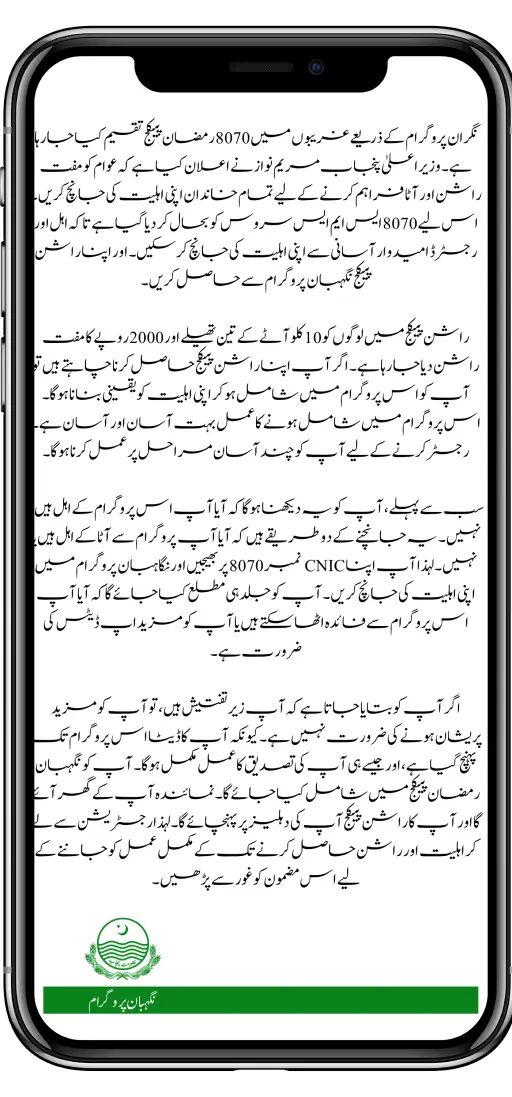 نگران پروگرام کے ذریعے غریبوں میں 8070 رمضان پیکج تقسیم کیا جا رہا
ہے۔ وزیراعلیٰ پنجاب مریم نواز نے اعلان کیا ہے کہ عوام کو مفت
راشن اور آٹا فراہم کرنے کے لیے تمام خاندان اپنی اہلیت کی جانچ کریں۔
اس لیے 8070 ایس ایم ایس سروس کو بحال کر دیا گیا ہے تاکہ اہل اور
رجسٹرڈ امیدوار آسانی سے اپنی اہلیت کی جانچ کر سکیں۔ اور اپنا راشن
پیکج نگہبان پروگرام سے حاصل کریں۔
راشن پیکج میں لوگوں کو 10 کلو آٹے کے تین تھیلے اور 2000 روپے کا مفت
راشن دیا جا رہا ہے۔ اگر آپ اپنا راشن پیکج حاصل کرنا چاہتے ہیں تو
آپ کو اس پروگرام میں شامل ہو کر اپنی اہلیت کو یقینی بنانا ہو گا۔
اس پروگرام میں شامل ہونے کا عمل بہت آسان اور آسان ہے۔
رجسٹر کرنے کے لیے آپ کو چند آسان مراحل پر عمل کرنا ہو گا۔
سب سے پہلے، آپ کو یہ دیکھنا ہو گا کہ آیا آپ اس پروگرام کے اہل ہیں
نہیں۔ یہ جانچنے کے دو طریقے ہیں کہ آیا آپ پروگرام سے آٹا کے اہل ہیں یا
نہیں۔ لہذا آپ اپنا CNIC نمبر 8070 پر بھیجیں اور نگاہبان پروگرام میں
اپنی اہلیت کی جانچ کریں۔ آپ کو جلد ہی مطلع کیا جائے گا کہ آیا آپ
اس پروگرام سے فائدہ اٹھا سکتے ہیں یا آپ کو مزید اپ ڈیٹس کی
ضرورت ہے۔
اگر آپ کو بتایا جاتا ہے کہ آپ زیر تفتیش ہیں، تو آپ کو مزید
پریشان ہونے کی ضرورت نہیں ہے۔ کیونکہ آپ کا ڈیٹا اس پروگرام تک
پہنچ گیا ہے، اور جیسے ہی آپ کی تصدیق کا عمل مکمل ہو گا۔ آپ کو نگہبان
رمضان پیکج میں شامل کیا جائے گا۔ نمائندہ آپ کے گھر آئے
گا اور آپ کا راشن پیکج آپ کی دہلیز پر پہنچائے گا۔ لہذا رجسٹریشن سے لے
کر اہلیت اور راشن حاصل کرنے تک کے مکمل عمل کو جاننے کے
لیے اس مضمون کو غور سے پڑھیں۔
نگہبان پروگرام